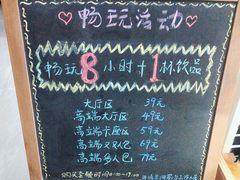 畅玩活动
畅玩8小时+1杯饮品
大厅区 39元
高端大厅区 49元
高端卡座区 59元
高端双人包 69元
高端多人包 79元
购买套餐时间